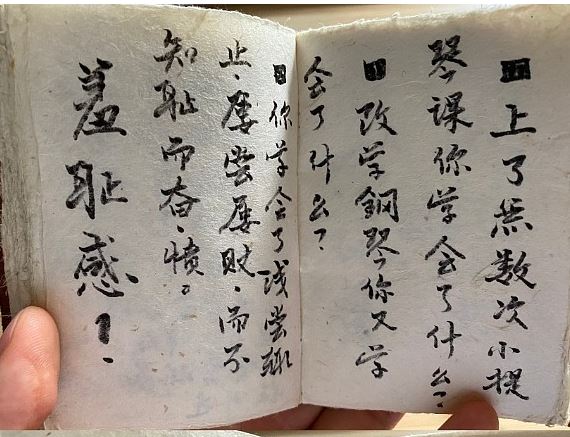 上了無数次小提
琴课你学会了什么?
改学鋼琴你又学
会了什么?
你学会了浅尝辄
止、屡尝屡败、而不
知耻而奋、愤。
羞耻感!